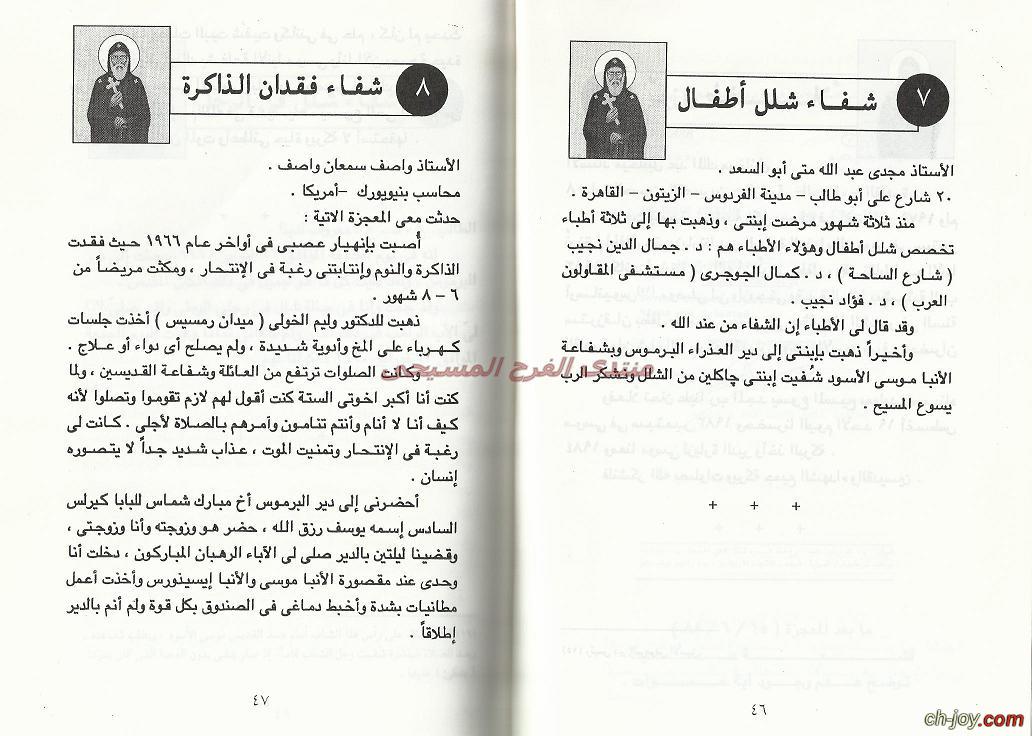 ٧
شفاء شلل أطفال
الأستاذ مجدى عبد الله متى أبو السعد .
٢٠ شارع على أبو طالب – مدينة الفردوس – الزيتون – القاهرة .
منذ ثلاثة شهور مرضت إبنتى ، وذهبت بها إلى ثلاثة أطباء
تخصص شلل أطفال وهؤلاء الأطباء هم : د . جمال الدين نجيب
( شارع الساحة ) ، د . كمال الجوجرى ( مستشفى المقاولون
العرب ) ، د . فؤاد نجيب .
وقد قال لى الأطباء إن الشفاء من عند الله .
وأخيراً ذهبت بإبنتى إلى دير العذراء البرموس وبشفاعة
الأنبا موسى الأسود شُفيت إبنتى چاكلين من الشلل ونشكر الرب
يسوع المسيح .
+ + +
٤٦
٨
شفاء فقدان الذاكرة
الأستاذ واصف سمعان واصف .
محاسب بنيويورك –أمريكا .
حدثت معى المعجزة الاتية :
أُصبت بإنهيار عصبى فى أواخر عام ١٩٦٦ حيث فقدت
الذاكرة والنوم وإنتابتنى رغبة فى الإنتحار ، ومكثت مريضاً من
٦ – ٨ شهور .
ذهبت للدكتور وليم الخولى ( ميدان رمسيس ) أخذت جلسات
كهرباء على المخ وأدوية شديدة ، ولم يصلح أى دواء أو علاج .
وكانت الصلوات ترتفع من العائلة وشفاعة القديسين ، ولما
كنت أنا أكبر اخوتى الستة كنت أقول لهم لازم تقوموا وتصلوا لأنه
كيف أنا لا أنام وأنتم تنامون وآمرهم بالصلاة لأجلى . كانت لى
رغبة فى الإنتحار وتمنيت الموت ، عذاب شديد جداً لا يتصوره
إنسان .
أحضرنى إلى دير البرموس أخ مبارك شماس للبابا كيرلس
السادس إسمه يوسف رزق الله ، حضر هو وزوجته وأنا وزوجتى ،
وقضينا ليلتين بالدير صلى لى الآباء الرهبان المباركون ، دخلت أنا
وحدى عند مقصورة الأنبا موسى والأنبا إيسيذورس وأخذت أعمل
مطانيات بشدة وأخبط دماغى فى الصندوق بكل قوة ولم أنم بالدير
إطلاقاً .
٤٧
منتدى الفرح المسيحى
ch-joy.com